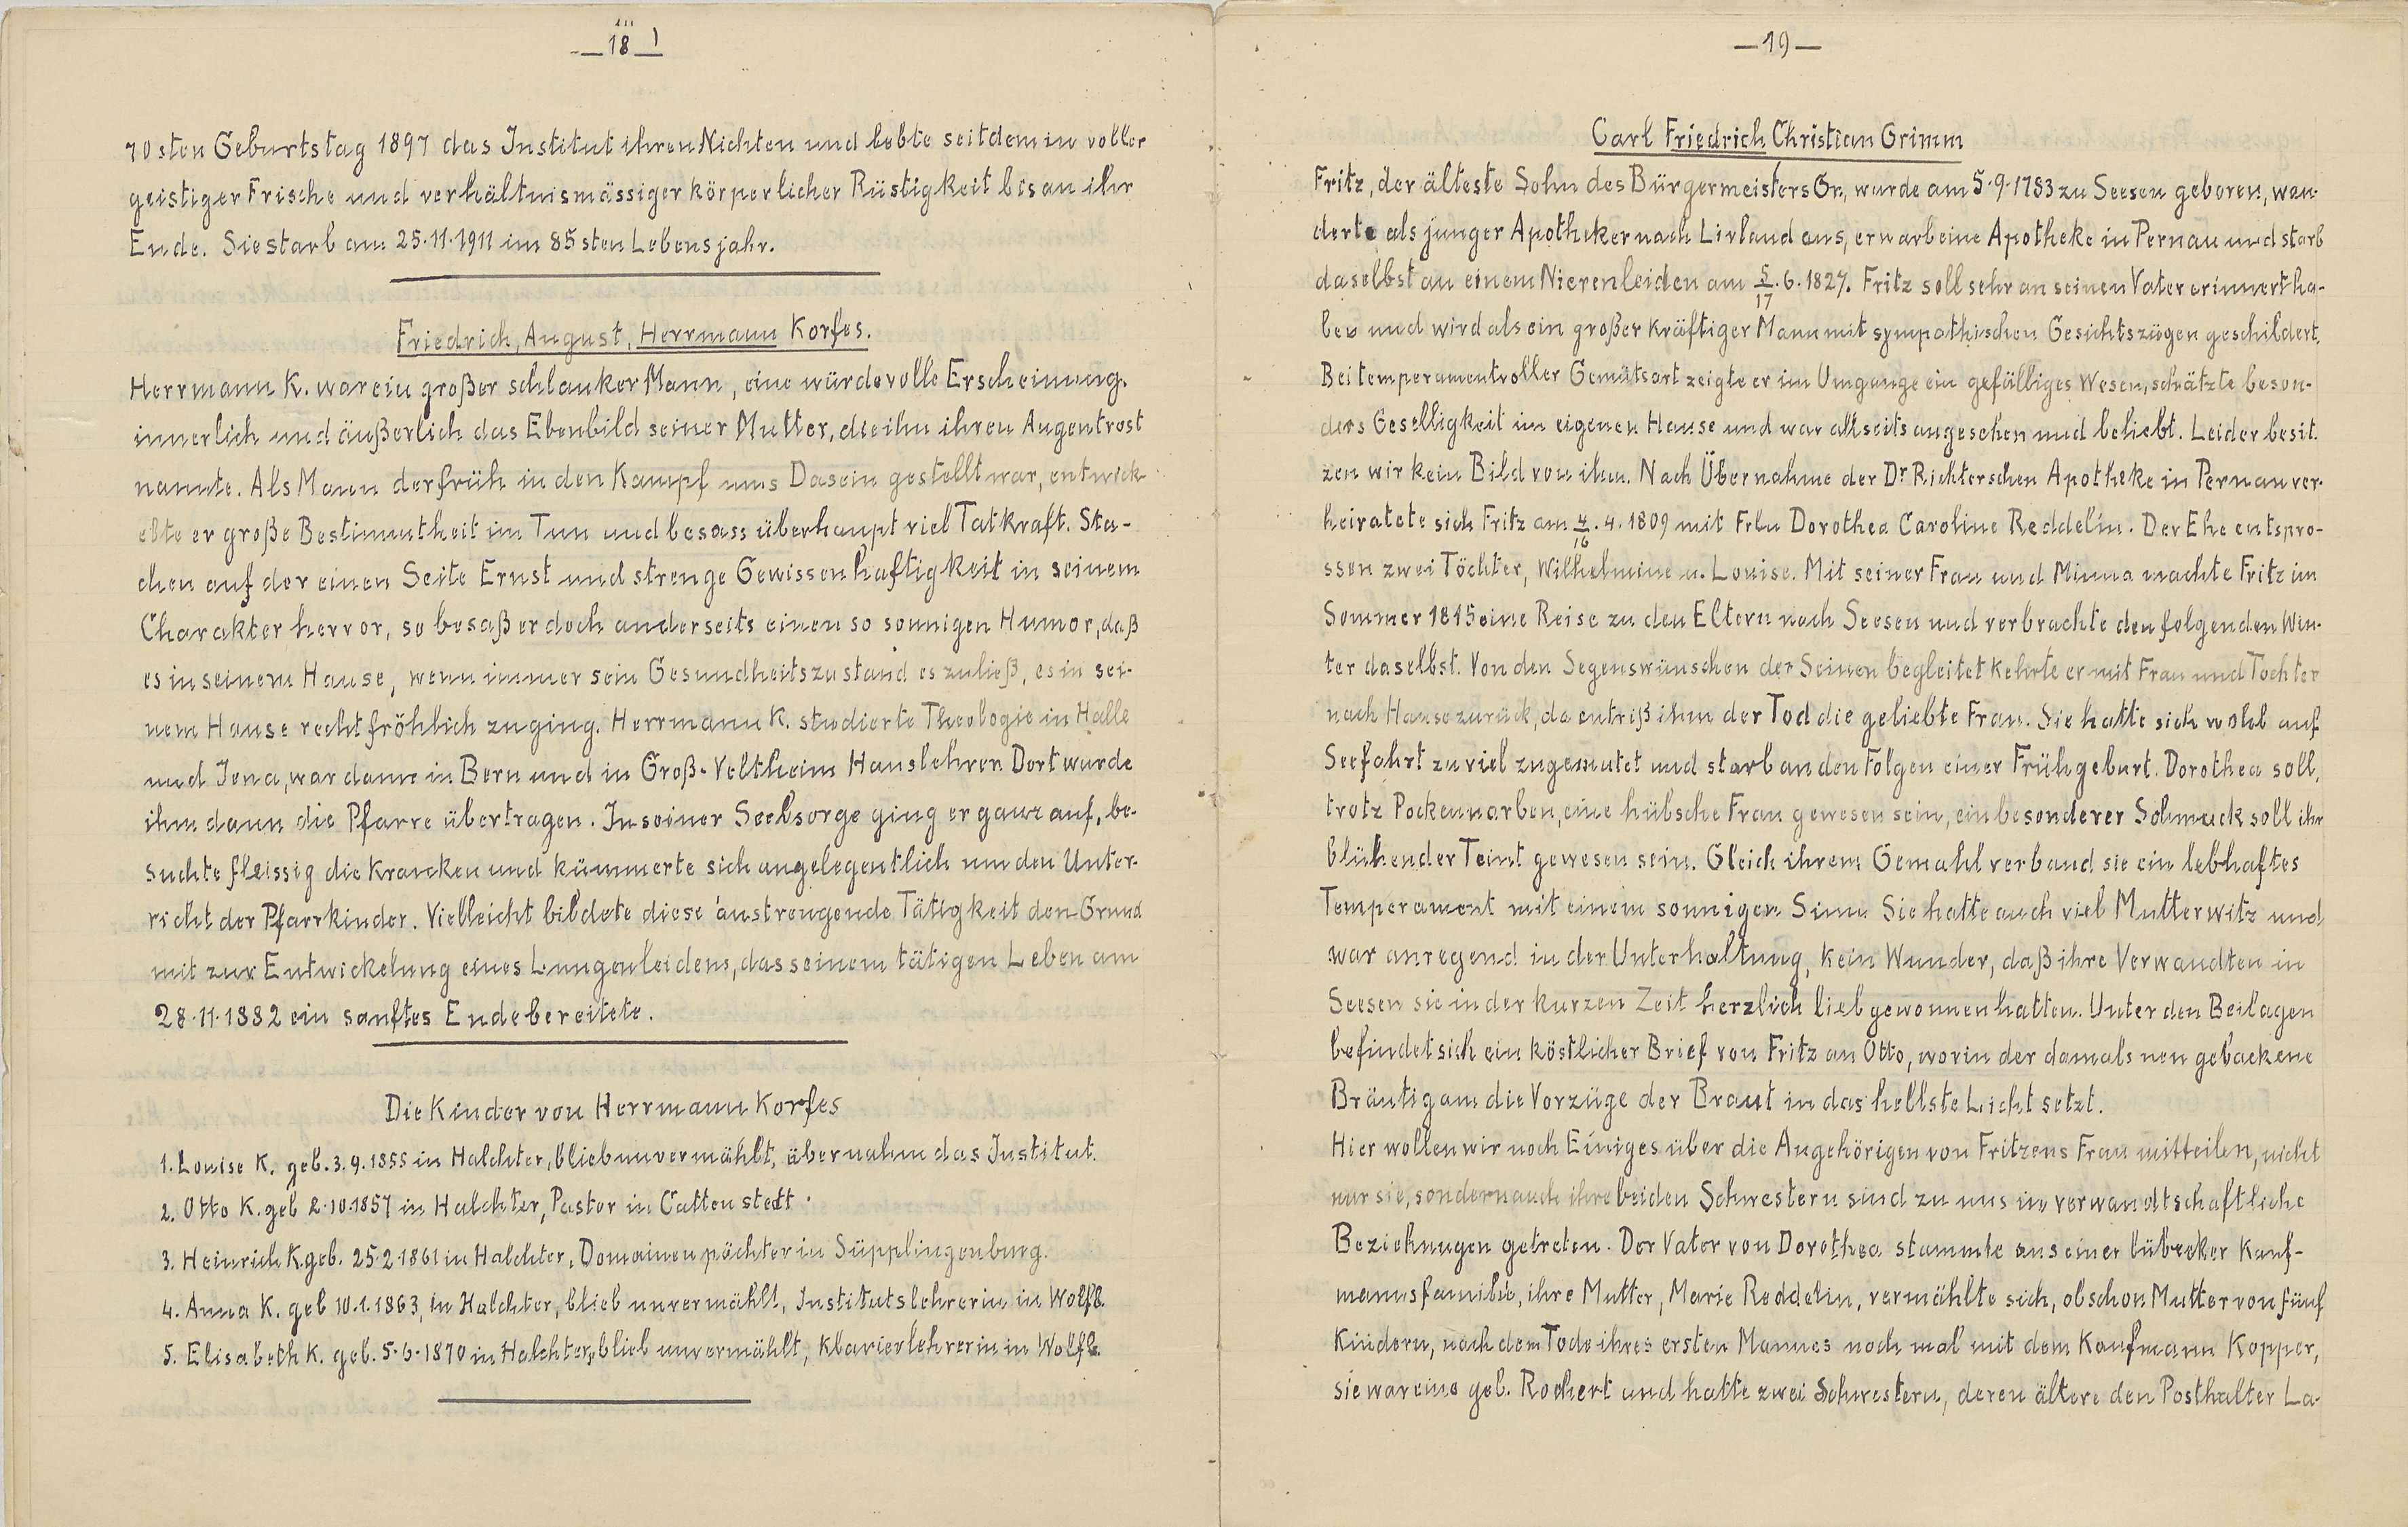 — 18 —
70sten Geburtstag 1897 das Institut ihren Nichten und lebte seitdem in voller
geistiger Frische und verhältnismässiger körperlicher Rüstigkeit bis an ihr
Ende. Sie starb am 25.11.1911 im 85sten Lebensjahr.
Friedrich, August, Herrmann Korfes.
Herrmann K. war ein großer schlanker Mann, eine würdevolle Erscheinung.
innerlich und äußerlich das Ebenbild seiner Mutter, die ihn ihren Augentrost
nannte. Als Mann der früh in den Kampf ums Dasein gestellt war, entwick-
elte er große Bestimmtheit im Tun und besass überhaupt viel Tatkraft. Sta-
chen auf der einen Seite Ernst und strenge Gewissenhaftigkeit in seinem
Charakter hervor, so besaß er doch anderseits einen so sonnigen Humor, daß
es in seinem Hause, wenn immer sein Gesundheitszustand es zuließ, es in sei-
nem Hause recht fröhlich zuging. Herrmann K. studierte Theologie in Halle
und Jena, war dann in Bern und in Groß-Veltheim Hauslehrer. Dort wurde
ihm dann die Pfarre übertragen. In seiner Seelsorge ging er ganz auf, be-
suchte fleissig die Krancken und kümmerte sich angelegentlich um den Unter-
richt der Pfarrkinder. Vielleicht bildete diese anstrengende Tätigkeit den Grund
mit zur Entwickelung eines Lungenleidens, das seinem tätigen Leben am
28.11.1882 ein sanftes Ende bereitete.
Die Kinder von Herrmann Korfes
1. Louise K. geb. 3.9.1855 in Halchter, blieb unvermählt, übernahm das Institut.
2. Otto K. geb 2.10.1857 in Halchter, Pastor in Cattenstedt.
3. Heinrich K. geb. 25.2.1861 in Halchter, Domainenpächter in Süpplingenburg.
4. Anna K. geb 10.1.1863, in Halchter, blieb unvermählt, Institutslehrerin in Wolfb.
5. Elisabeth K. geb. 5.6.1870 in Halchter, blieb unvermählt, Klavierlehrerin in Wolfb.
— 19 —
Carl Friedrich Christian Grimm
Fritz, der älteste Sohn des Bürgermeisters Gr., wurde am 5.9.1783 zu Seesen geboren, wan-
derte als junger Apotheker nach Livland aus, erwarb eine Apotheke in Pernau und starb
daselbst an einem Nierenleiden am 5/17.6.1827. Fritz soll sehr an seinen Vater erinnert ha-
ben und wird als ein großer kräftiger Mann mit sympathischen Gesichtszügen geschildert.
Bei temperamentvoller Gemütsart zeigte er im Umgange ein gefälliges Wesen, schätzte beson-
ders Geselligkeit im eigenen Hause und war allseits angesehen und beliebt. Leider besit-
zen wir kein Bild von ihm. Nach Übernahme der Dr Richterschen Apotheke in Pernau ver-
heiratete sich Fritz am 4/16.4.1809 mit Frln Dorothea Caroline Reddelin. Der Ehe entspro-
ssen zwei Töchter, Wilhelmine u. Louise. Mit seiner Frau und Minna machte Fritz im
Sommer 1815 eine Reise zu den Eltern nach Seesen und verbrachte den folgenden Win-
ter daselbst. Von den Segenswünschen der Seinen begleitet kehrte er mit Frau und Tochter
nach Hause zurück, da entriß ihm der Tod die geliebte Frau. Sie hatte sich wohl auf
Seefahrt zu viel zugemutet und starb an den Folgen einer Frühgeburt. Dorothea soll,
trotz Pockennarben, eine hübsche Frau gewesen sein, ein besonderer Schmuck soll ihr
blühender Teint gewesen sein. Gleich ihrem Gemahl verband sie ein lebhaftes
Temperament mit einem sonnigen Sinn Sie hatte auch viel Mutterwitz und
war anregend in der Unterhaltung, kein Wunder, daß ihre Verwandten in
Seesen sie in der kurzen Zeit herzlich lieb gewonnen hatten. Unter den Beilagen
befindet sich ein köstlicher Brief von Fritz an Otto, worin der damals neu gebackene
Bräutigam die Vorzüge der Braut in das hellste Licht setzt.
Hier wollen wir noch Einiges über die Angehörigen von Fritzens Frau mitteilen, nicht
nur sie, sondern auch ihre beiden Schwestern sind zu uns in verwandtschaftliche
Beziehungen getreten. Der Vater von Dorothea stammte aus einer lübecker Kauf-
mannsfamilie, ihre Mutter, Marie Reddelin, vermählte sich, obschon Mutter von fünf
Kindern, nach dem Tode ihres ersten Mannes noch mal mit dem Kaufmann Kopper,
sie war eine geb. Rochert und hatte zwei Schwestern, deren ältere den Posthalter La-